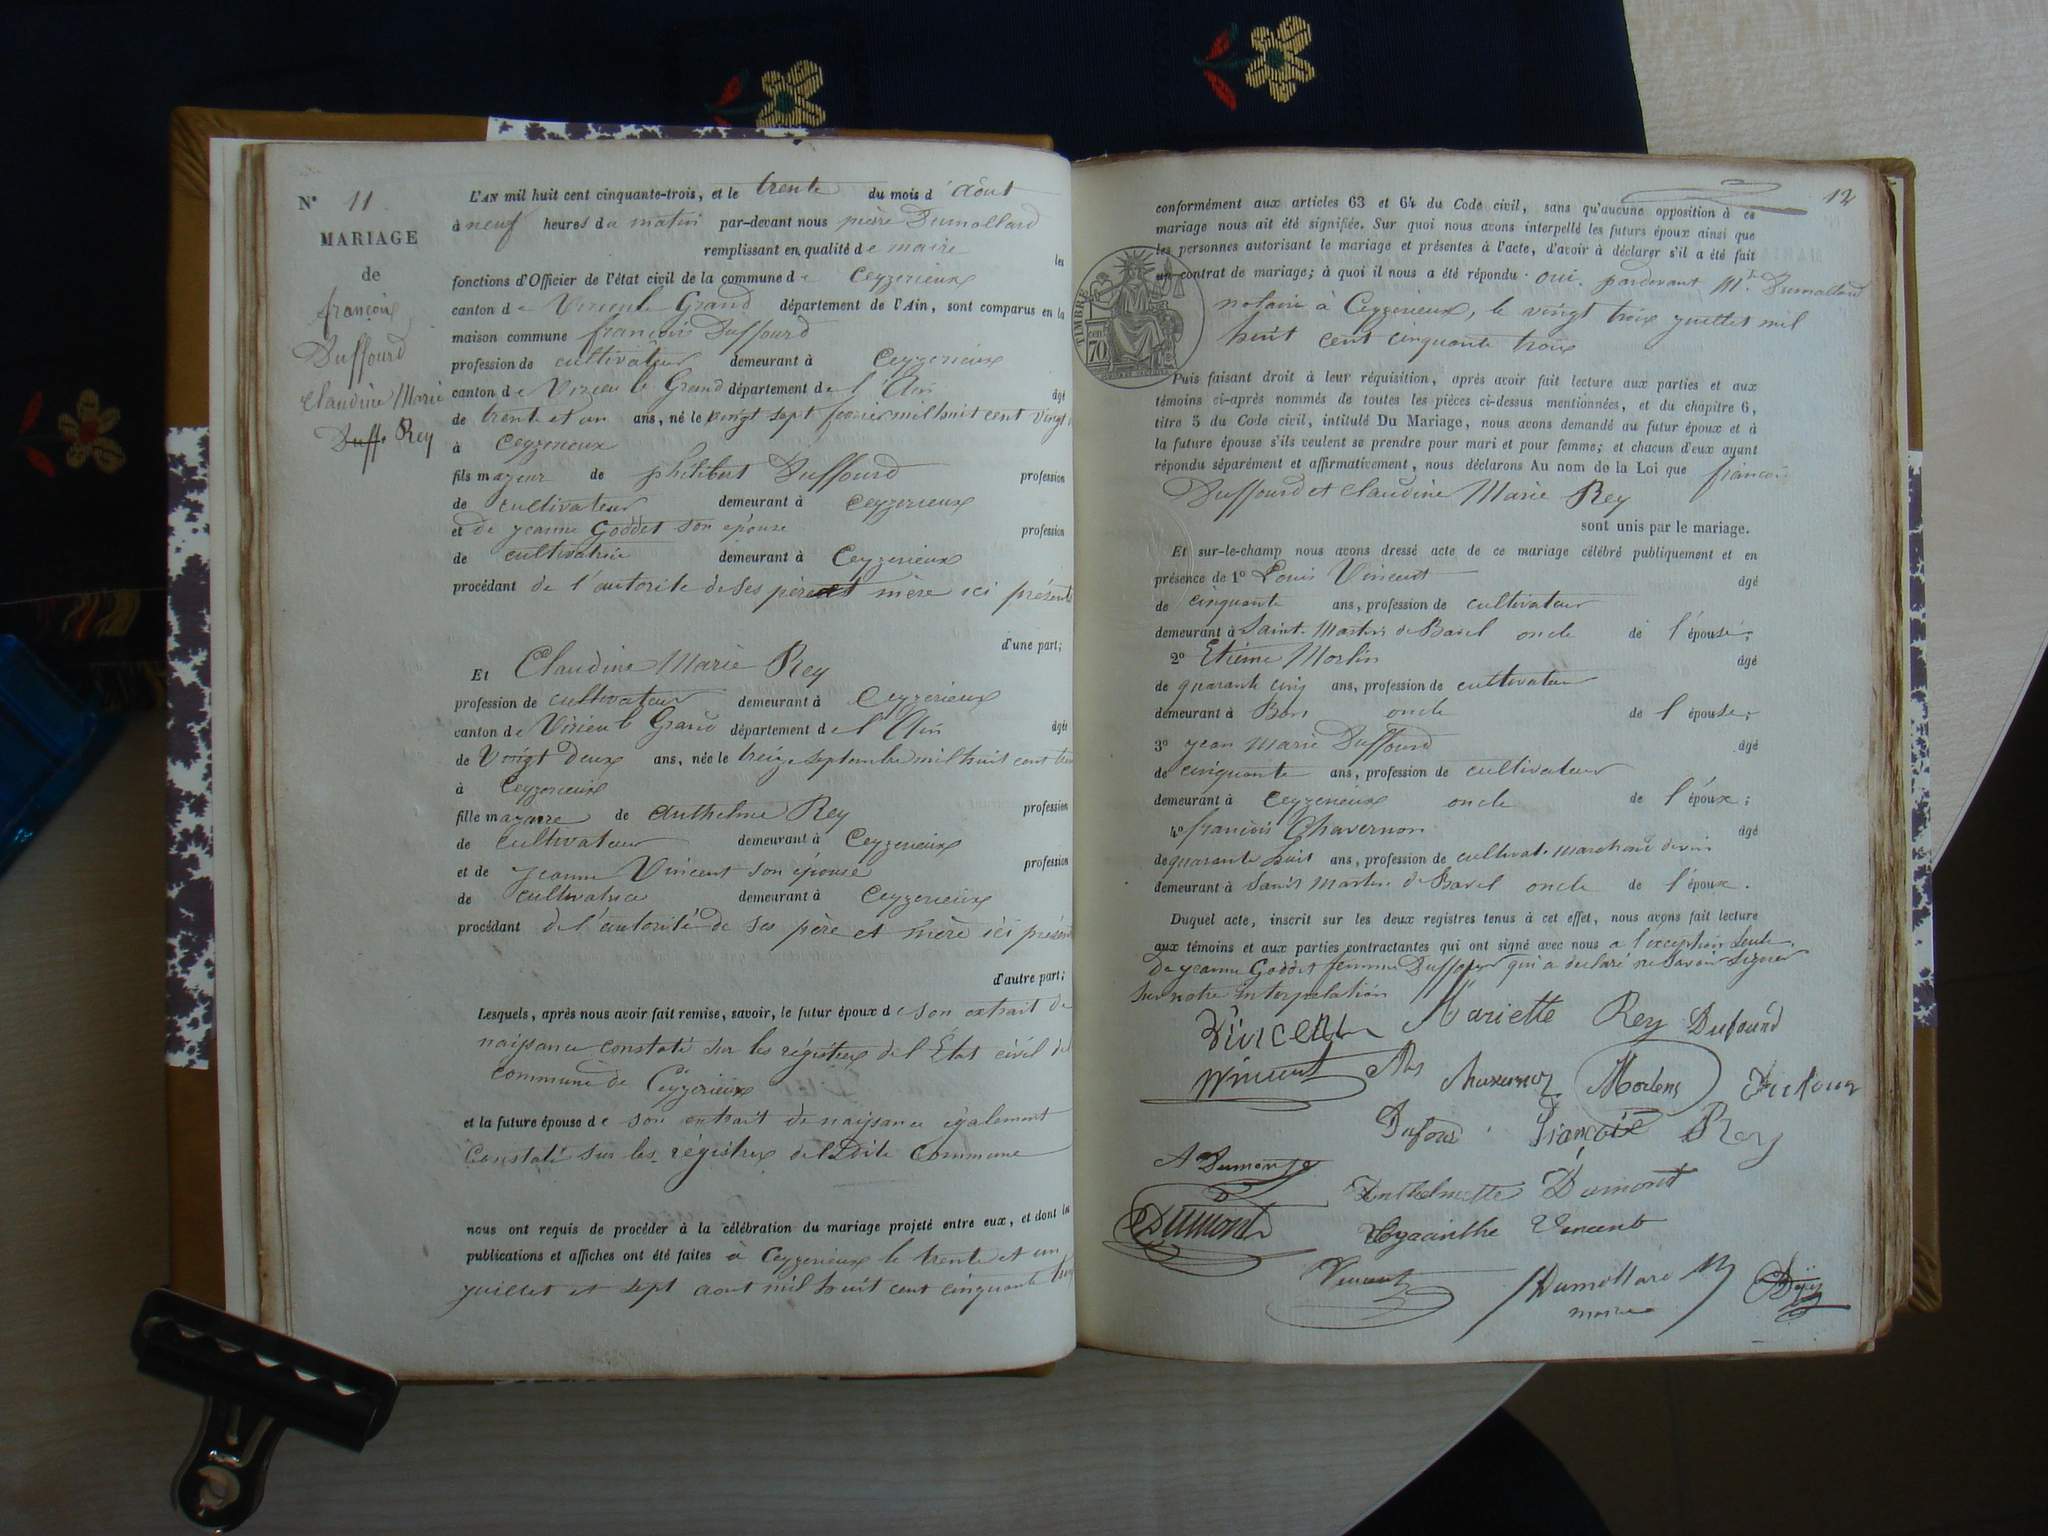 N° 11
MARIAGE
de
françois
Duffourd
Claudine Marie
Duffo Rey
L'AN mil huit cent cinquante-trois, et le trente du mois d'août
à neuf heures du matin par-devant nous pierre Dumollard
remplissant en qualité de maire les
fonctions d'Officier de l'état civil de la commune de Ceyzerieux
canton de Virieu le Grand département de l'Ain, sont comparus en la
maison commune françois Duffourd
profession de cultivateur demeurant à Ceyzerieux
canton de Virieu le Grand département de l'Ain âgé
de trente et un ans, né le vingt sept fevrier mil huit cent vingt
à Ceyzerieux
fils mayeur de philibert Duffourd profession
de cultivateur demeurant à Ceyzerieux
et de jeanne Goddet son épouse profession
de cultivatrice demeurant à Ceyzerieux
procédant de l'autorite de ses père et mère ici présents
d'une part;
Et Claudine Marie Rey
profession de cultivateur demeurant à Ceyzerieux
canton de Virieu le Grand département de l'Ain âgée
de Vingt Deux ans, née le treize septembre mil huit cent
à Ceyzerieux
fille mayeure de Anthelme Rey profession
de cultivateur demeurant à Ceyzerieux
et de jeanne Vincent son épouse profession
de cultivatrice demeurant à Ceyzerieux
procédant de l'autorité de ses père et mère ici présents
d'autre part;
Lesquels, après nous avoir fait remise, savoir, le futur époux de son extrait de
naissance constaté sur les régistres de l'État civil de
commune de Ceyzerieux
et la future épouse de son extrait de naissance également
Constaté sur les régistres de ladite Commune
nous ont requis de procéder à la célébration du mariage projeté entre eux, et dont les
publications et affiches ont été faites à Ceyzerieux le trente et un
juillet et sept aout mil huit cent cinquante trois
12
conformément aux articles 63 et 64 du Code civil, sans qu'aucune opposition à ce
mariage nous ait été signifiée. Sur quoi nous avons interpellé les futurs époux ainsi que
les personnes autorisant le mariage et présentes à l'acte, d'avoir à déclarer s'il a été fait
un contrat de mariage; à quoi il nous a été répondu oui. pardevant Mr. Dumollard
notaire à Ceyzerieux, le vingt trois juillet mil
huit cent cinquante trois
TIMBRE
70 cent
Puis faisant droit à leur réquisition, après avoir fait lecture aux parties et aux
témoins ci-après nommés de toutes les pièces ci-dessus mentionnées, et du chapitre 6,
titre 5 du Code civil, intitulé Du Mariage, nous avons demandé au futur époux et à
la future épouse s'ils veulent se prendre pour mari et pour femme; et chacun d'eux ayant
répondu séparément et affirmativement, nous déclarons Au nom de la Loi que françois
Duffourd et Claudine Marie Rey
sont unis par le mariage.
Et sur-le-champ nous avons dressé acte de ce mariage célébré publiquement et en
présence de 1° Louis Vincent âgé
de cinquante ans, profession de cultivateur
demeurant à Saint-Martin de Bavel oncle de l'épouse;
2° Etiene Morlin âgé
de quarante cinq ans, profession de cultivateur
demeurant à Bons oncle de l'épouse;
3° jean Marie Duffourd âgé
de cinquante ans, profession de cultivateur
demeurant à Ceyzerieux oncle de l'époux;
4° françois Chavernon âgé
de quarante huit ans, profession de cultivat. Marchand de vin
demeurant à Saint Martin de Bavel oncle de l'époux.
Duquel acte, inscrit sur les deux registres tenus à cet effet, nous avons fait lecture
aux témoins et aux parties contractantes qui ont signé avec nous a l'exception seule
De jeanne Goddet femme Duffourd qui a declaré ne savoir Signer
sur notre interpelation
Vincent Mariette Rey Dufourd
Vincent Morlens
Dufour François Rey
A Dumont
Anthelmette Dumont
Dumont
Hyacinthe Vincent
Vincent Dumollard
maire